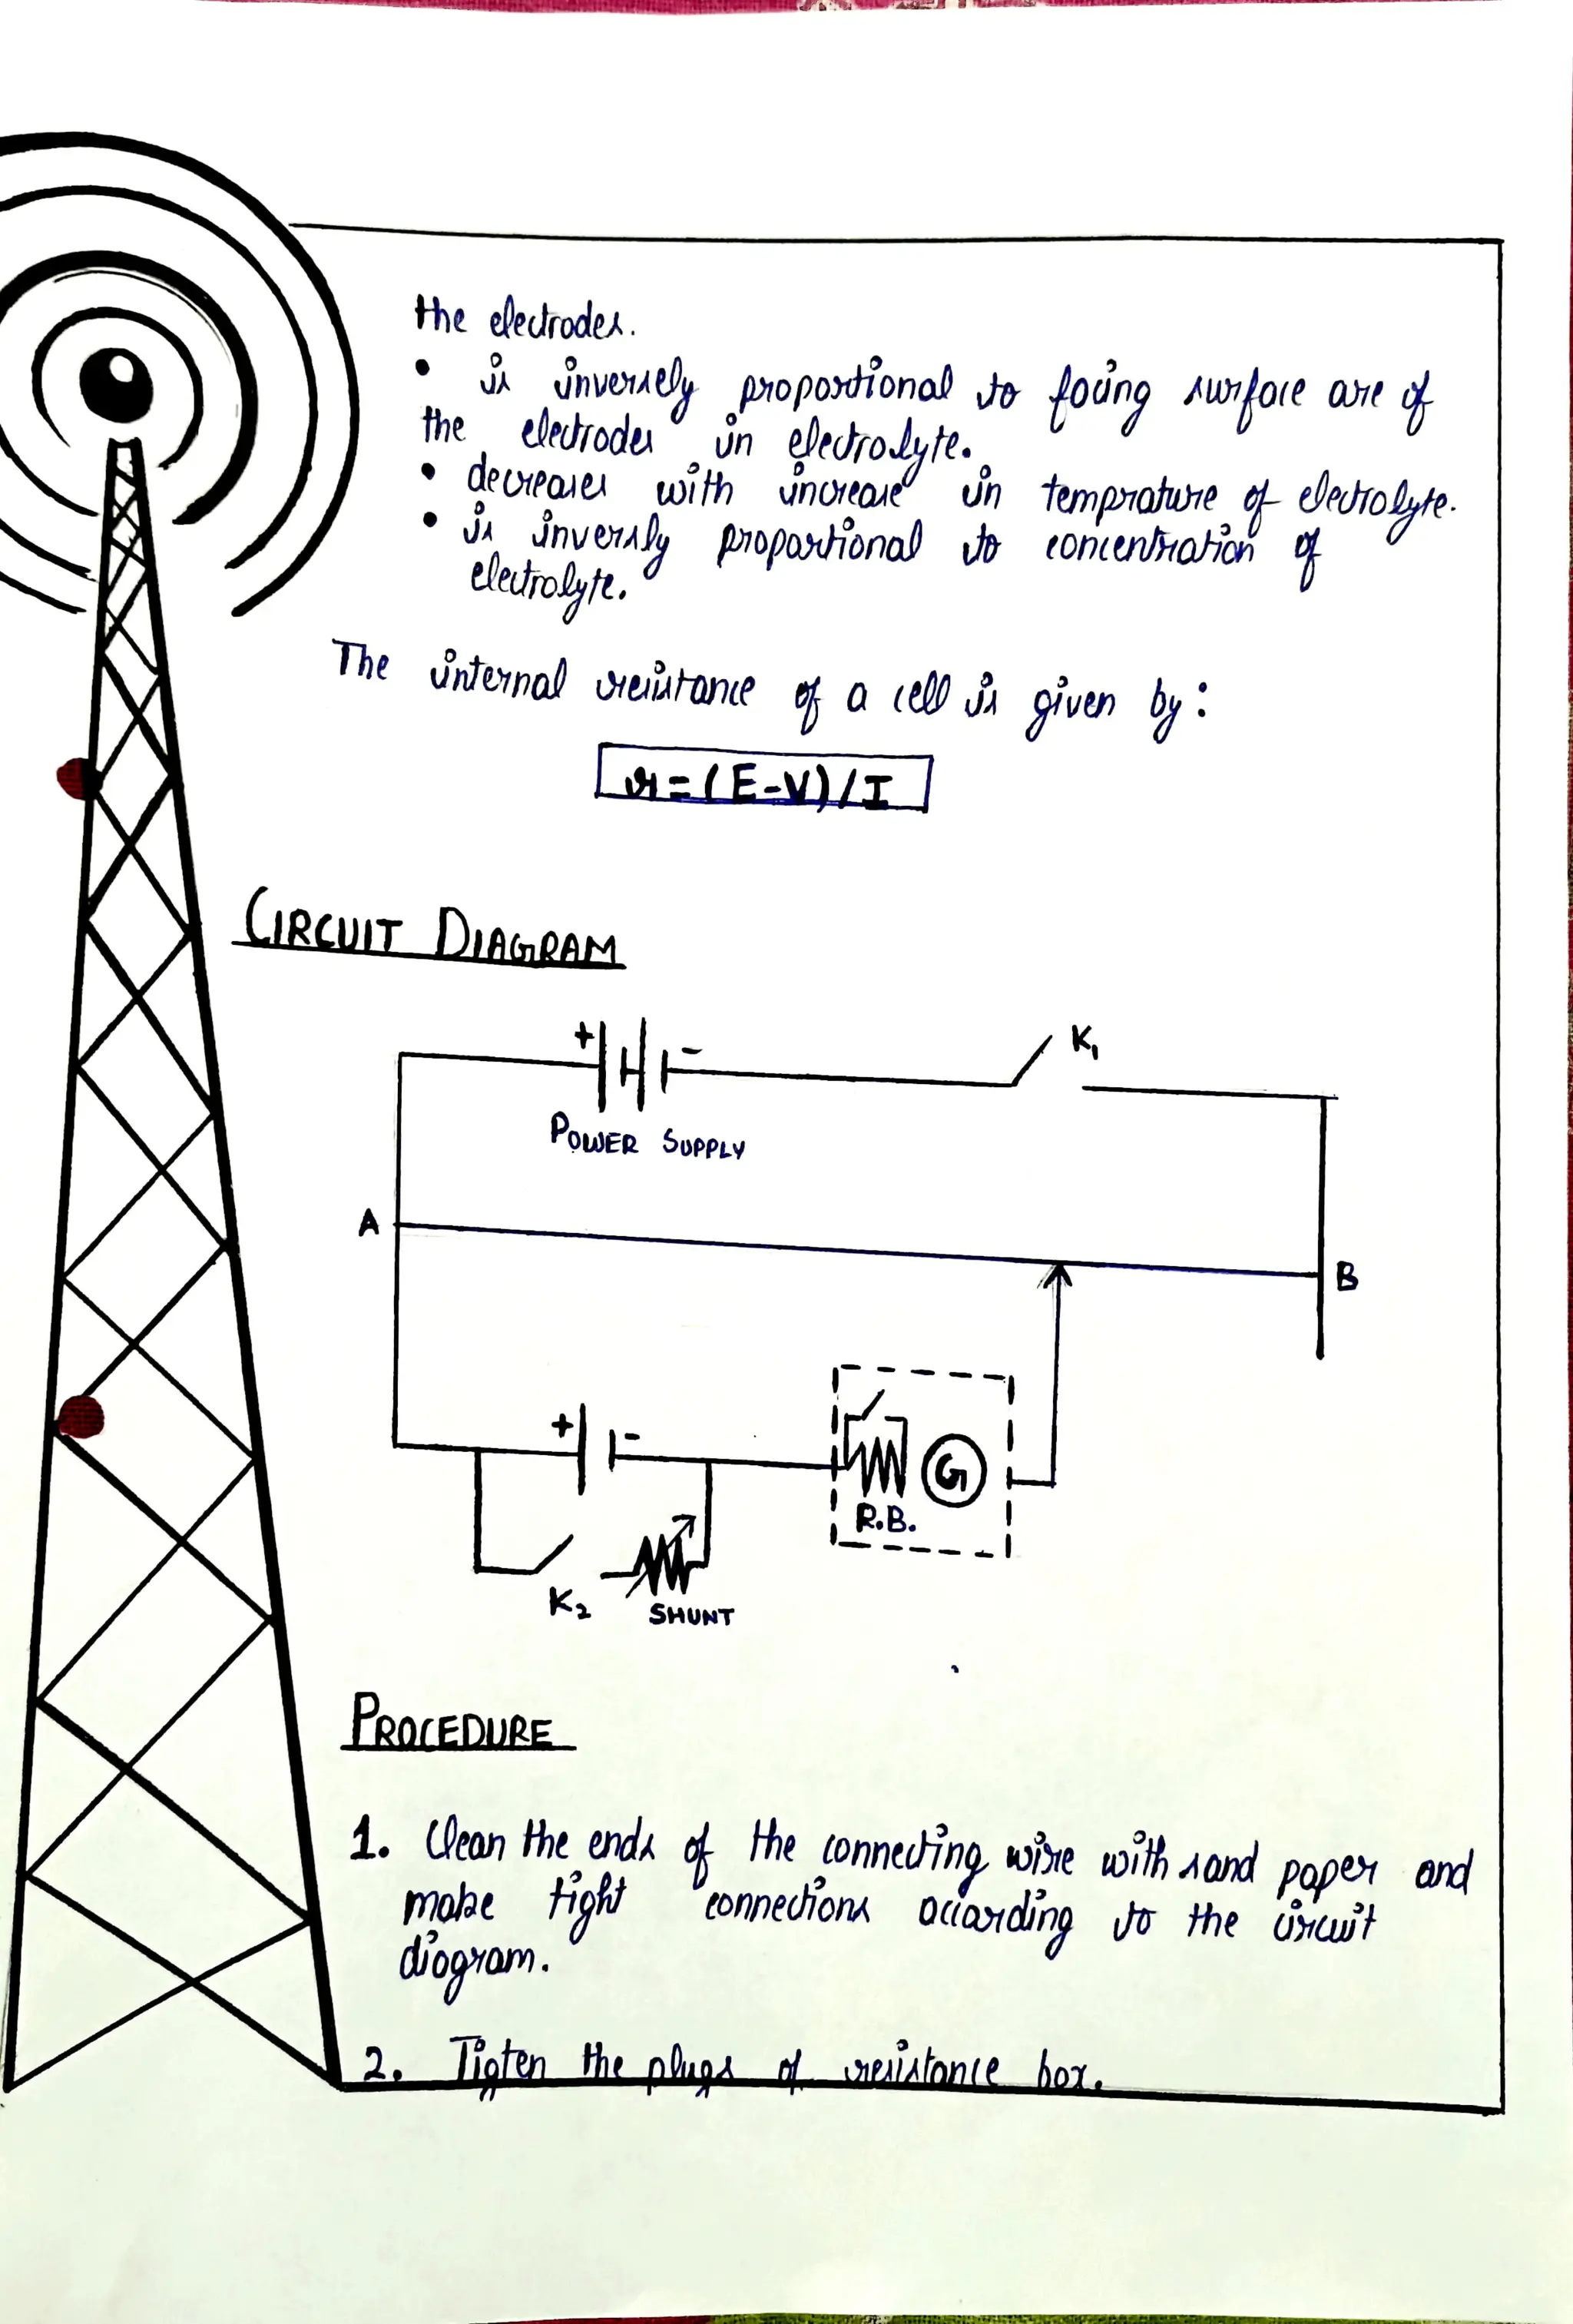 the electrodes.
• is inversely proportional to facing surface are of
the electrodes in electrolyte.
• decreases with increase in temprature of electrolyte.
• is inversly proportional to concentration of
electrolyte.
The internal resistance of a cell is given by:
r = (E-V)/I
CIRCUIT DIAGRAM
+ - K₁
POWER SUPPLY
A
B
+ -
G
R.B.
K₂
SHUNT
PROCEDURE
1. Clean the ends of the connecting wire with sand paper and
make tight connections according to the circuit
diagram.
2. Tigten the plugs of resistance box.